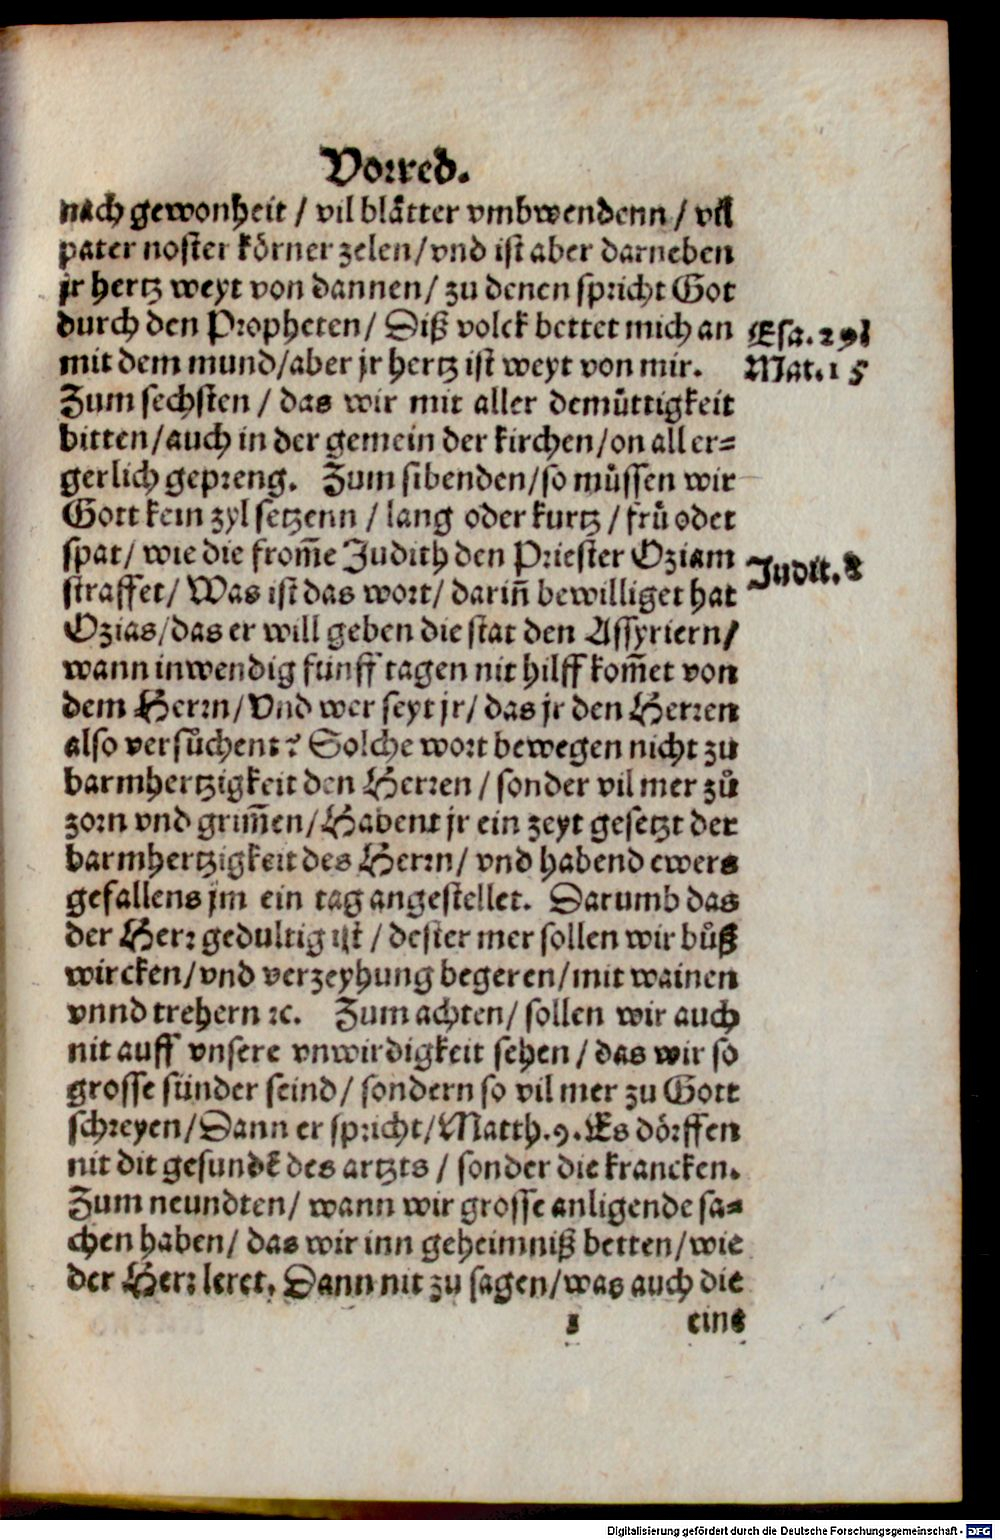 Vorred.
nach gewonheit / vil blåtter vmbwendenn / vil
pater noster körner zelen / vnd ist aber darneben
jr hertz weyt von dannen / zu denen spricht Got
durch den Propheten / Diß volck bettet mich an
Esa. 29
mit dem mund / aber jr hertz ist weyt von mir.
Mat. 15
Zum sechsten / das wir mit aller demůttigkeit
bitten / auch in der gemein der kirchen / on all er=
gerlich gepreng. Zum sibenden / so můssen wir
Gott kein zyl setzenn / lang oder kurtz / frů oder
spat / wie die from̄e Judith den Priester Oziam
Judit. 8
straffet / Was ist das wort / darin̄ bewilliget hat
Ozias / das er will geben die stat den Assyriern /
wann inwendig fünff tagen nit hilff kom̄et von
dem Herrn / Vnd wer seyt jr / das jr den Herren
also versůchent? Solche wort bewegen nicht zu
barmhertzigkeit den Herren / sonder vil mer zů
zorn vnd grim̄en / Habent jr ein zeyt gesetzt der
barmhertzigkeit des Herrn / vnd habend ewers
gefallens jm ein tag angestellet. Darumb das
der Herr gedultig ist / dester mer sollen wir bůß
wircken / vnd verzeyhung begeren / mit wainen
vnnd trehern ꝛc. Zum achten / sollen wir auch
nit auff vnsere vnwirdigkeit sehen / das wir so
grosse sünder seind / sondern so vil mer zu Gott
schreyen / Dann er spricht / Matth. 9. Es dörffen
nit dit gesundē des artzts / sonder die krancken.
Zum neundten / wann wir grosse anligende sa=
chen haben / das wir inn geheimniß betten / wie
der Herr leret. Dann nit zu sagen / was auch die
eins
Digitalisierung gefördert durch die Deutsche Forschungsgemeinschaft - DFG